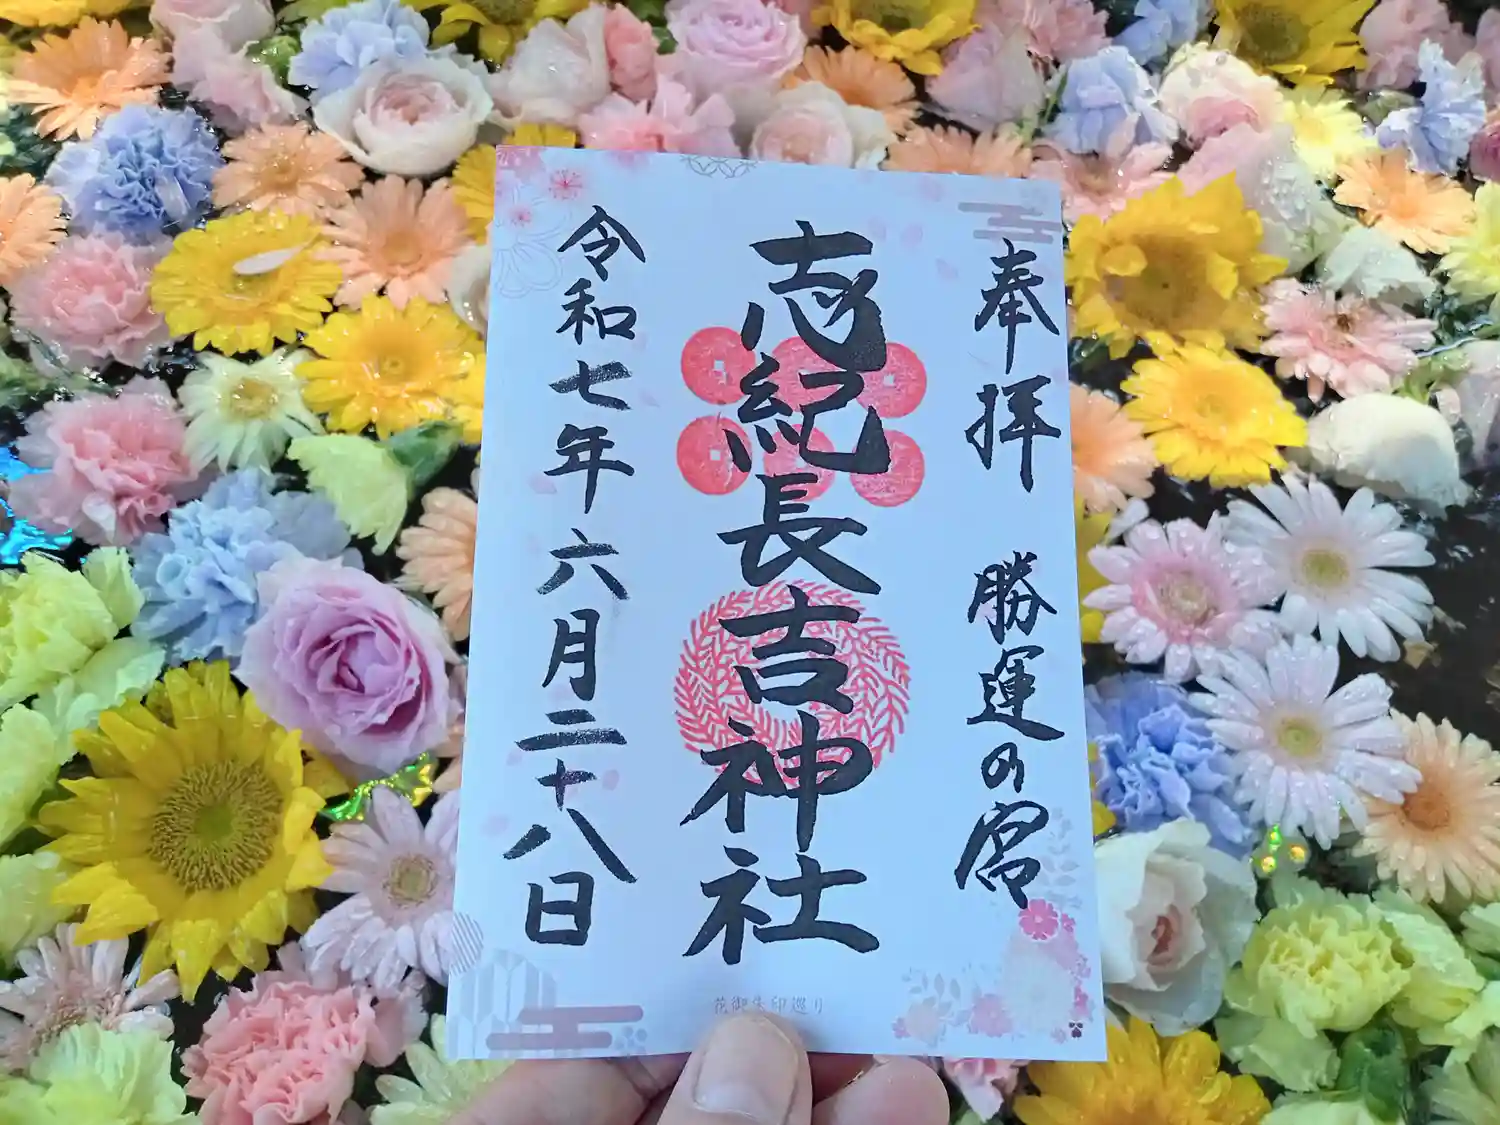 奉拝 勝運の宮
志紀長吉神社
令和七年六月二十八日
花御朱印巡り